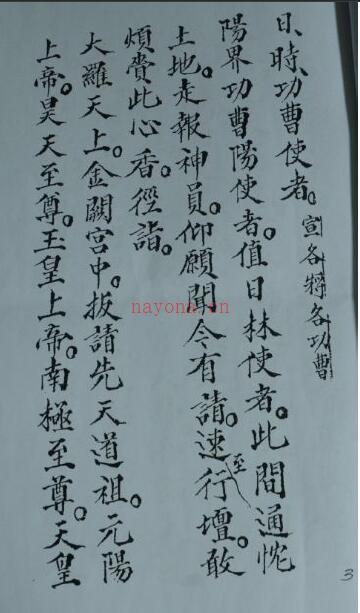 日、時、功曹使者。宣各将各功曹
陽界功曹陽使者。值日林使者。此間通忱
土地。走報神員。仰願聞今有請。速至行壇。敢
煩賫此心香。徑詣。
大羅天上。金闕宮中。拔請先天道祖。元陽
上帝。昊天至尊。玉皇上帝。南極至尊。天皇
nayona.cn
3